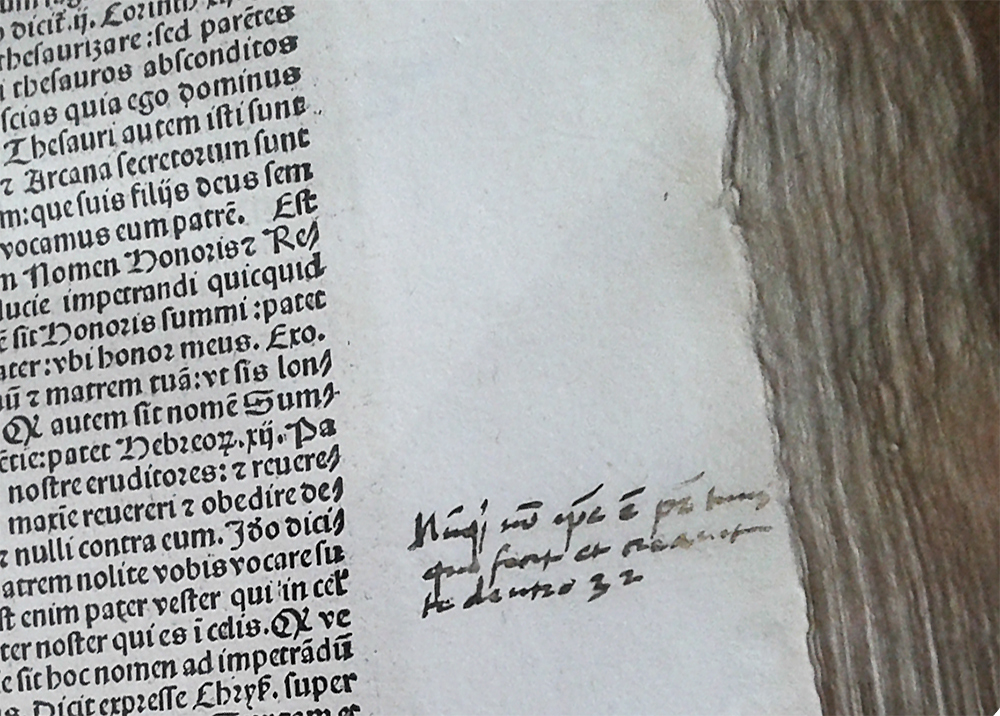 dicit̄.ij. Corinth
thesaurizare:sed parētes
thesauros absconditos
scias quia ego dominus
Thesauri autem isti sunt
⁊ Arcana secretorum sunt
m:que suis filijs deus sem
vocamus eum patrē. Est
n Nomen Honoris⁊ Re⸗
ducie impetrandi quicquid
ē sit Honoris summi:patet
ater:vbi honor meus. Exo.
⁊ matrem tuā:vt sis lon⸗
Qꝫ autem sit nomē Sum⸗
ētie:patet Hebreoꝝ.xij.Pa
nostre eruditores:⁊ reuere⸗
maxīe reuereri ⁊ obedire de⸗
⁊ nulli contra eum. Iďo dici⸗
atrem nolite vobis vocare su
st enim pater vester qui in cel
ter noster qui es ī celis.Qꝫ ve
e sit hoc nomen ad impetrādū
Dicit expresse Chryẜ. super
Nūqj nō ipē ē pr̄ tuus
qui fecit et
te deutro 32